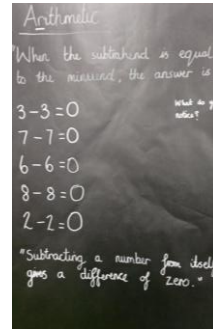 Arithmetic
"When the subtrahend is equal
to the minuend, the answer is
3-3=0
What do
notice?
7-7=0
6-6=0
8-8=0
2-2=0
"Subtracting a number from itself
gives a difference of zero."